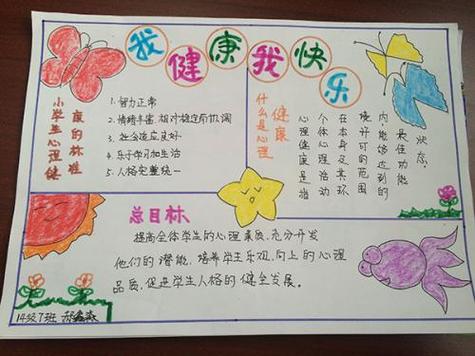 我健康我快乐
小学生心理健
康的标准
1.智力正常
2.情绪丰富,相对稳定而协调
3.社会适应良好
4.乐于学习和生活
5.人格完整统一
什么是心理
健康
心理健康是指
个体心理活动
在本身及其环
境许可的范围
内,能够达到的
最佳功能
状态.
总目标
提高全体学生的心理素质,充分开发
他们的潜能,培养学生乐观,向上的心理
品质,促进学生人格的健全发展.
14级7班